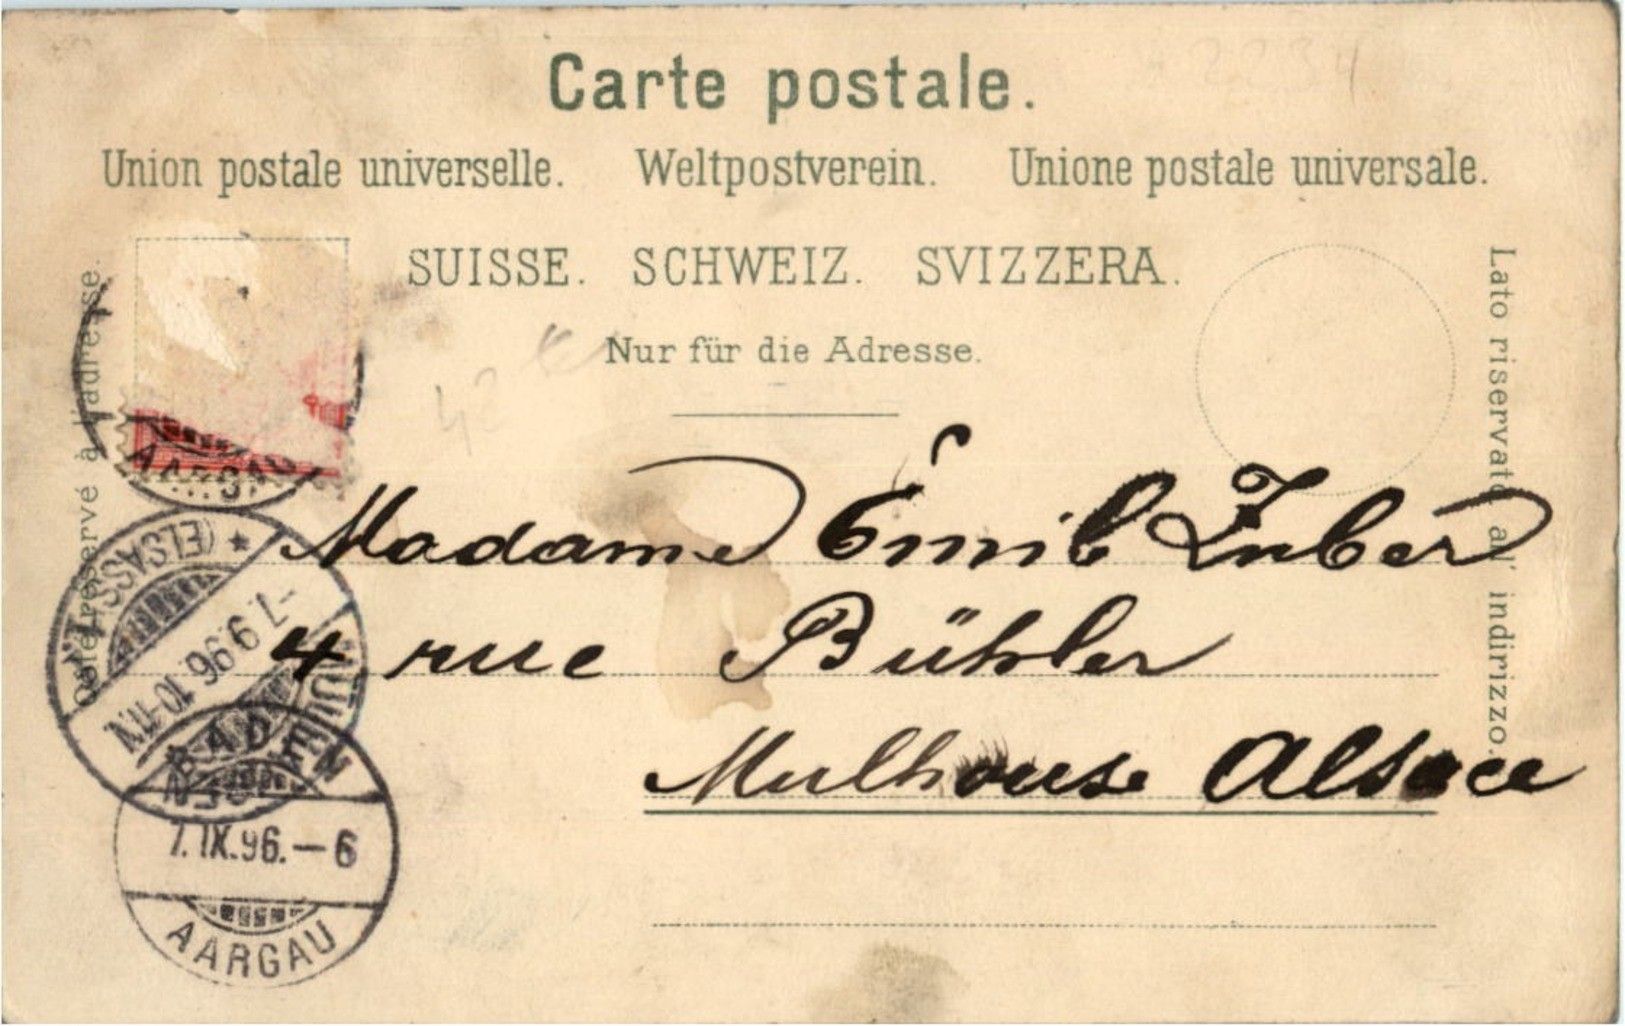 Carte postale.
Union postale universelle. Weltpostverein. Unione postale universale.
SUISSE. SCHWEIZ. SVIZZERA.
Nur für die Adresse.
Côté réservé à l'adresse.
Lato riservato all' indirizzo.
42
Madame Émil Zuber
4 rue Bühler
Mulhouse Alsace
AARGAU
(ELSASS) *
-7.9.96.10-11N.
BADEN
7.IX.96.—6
AARGAU